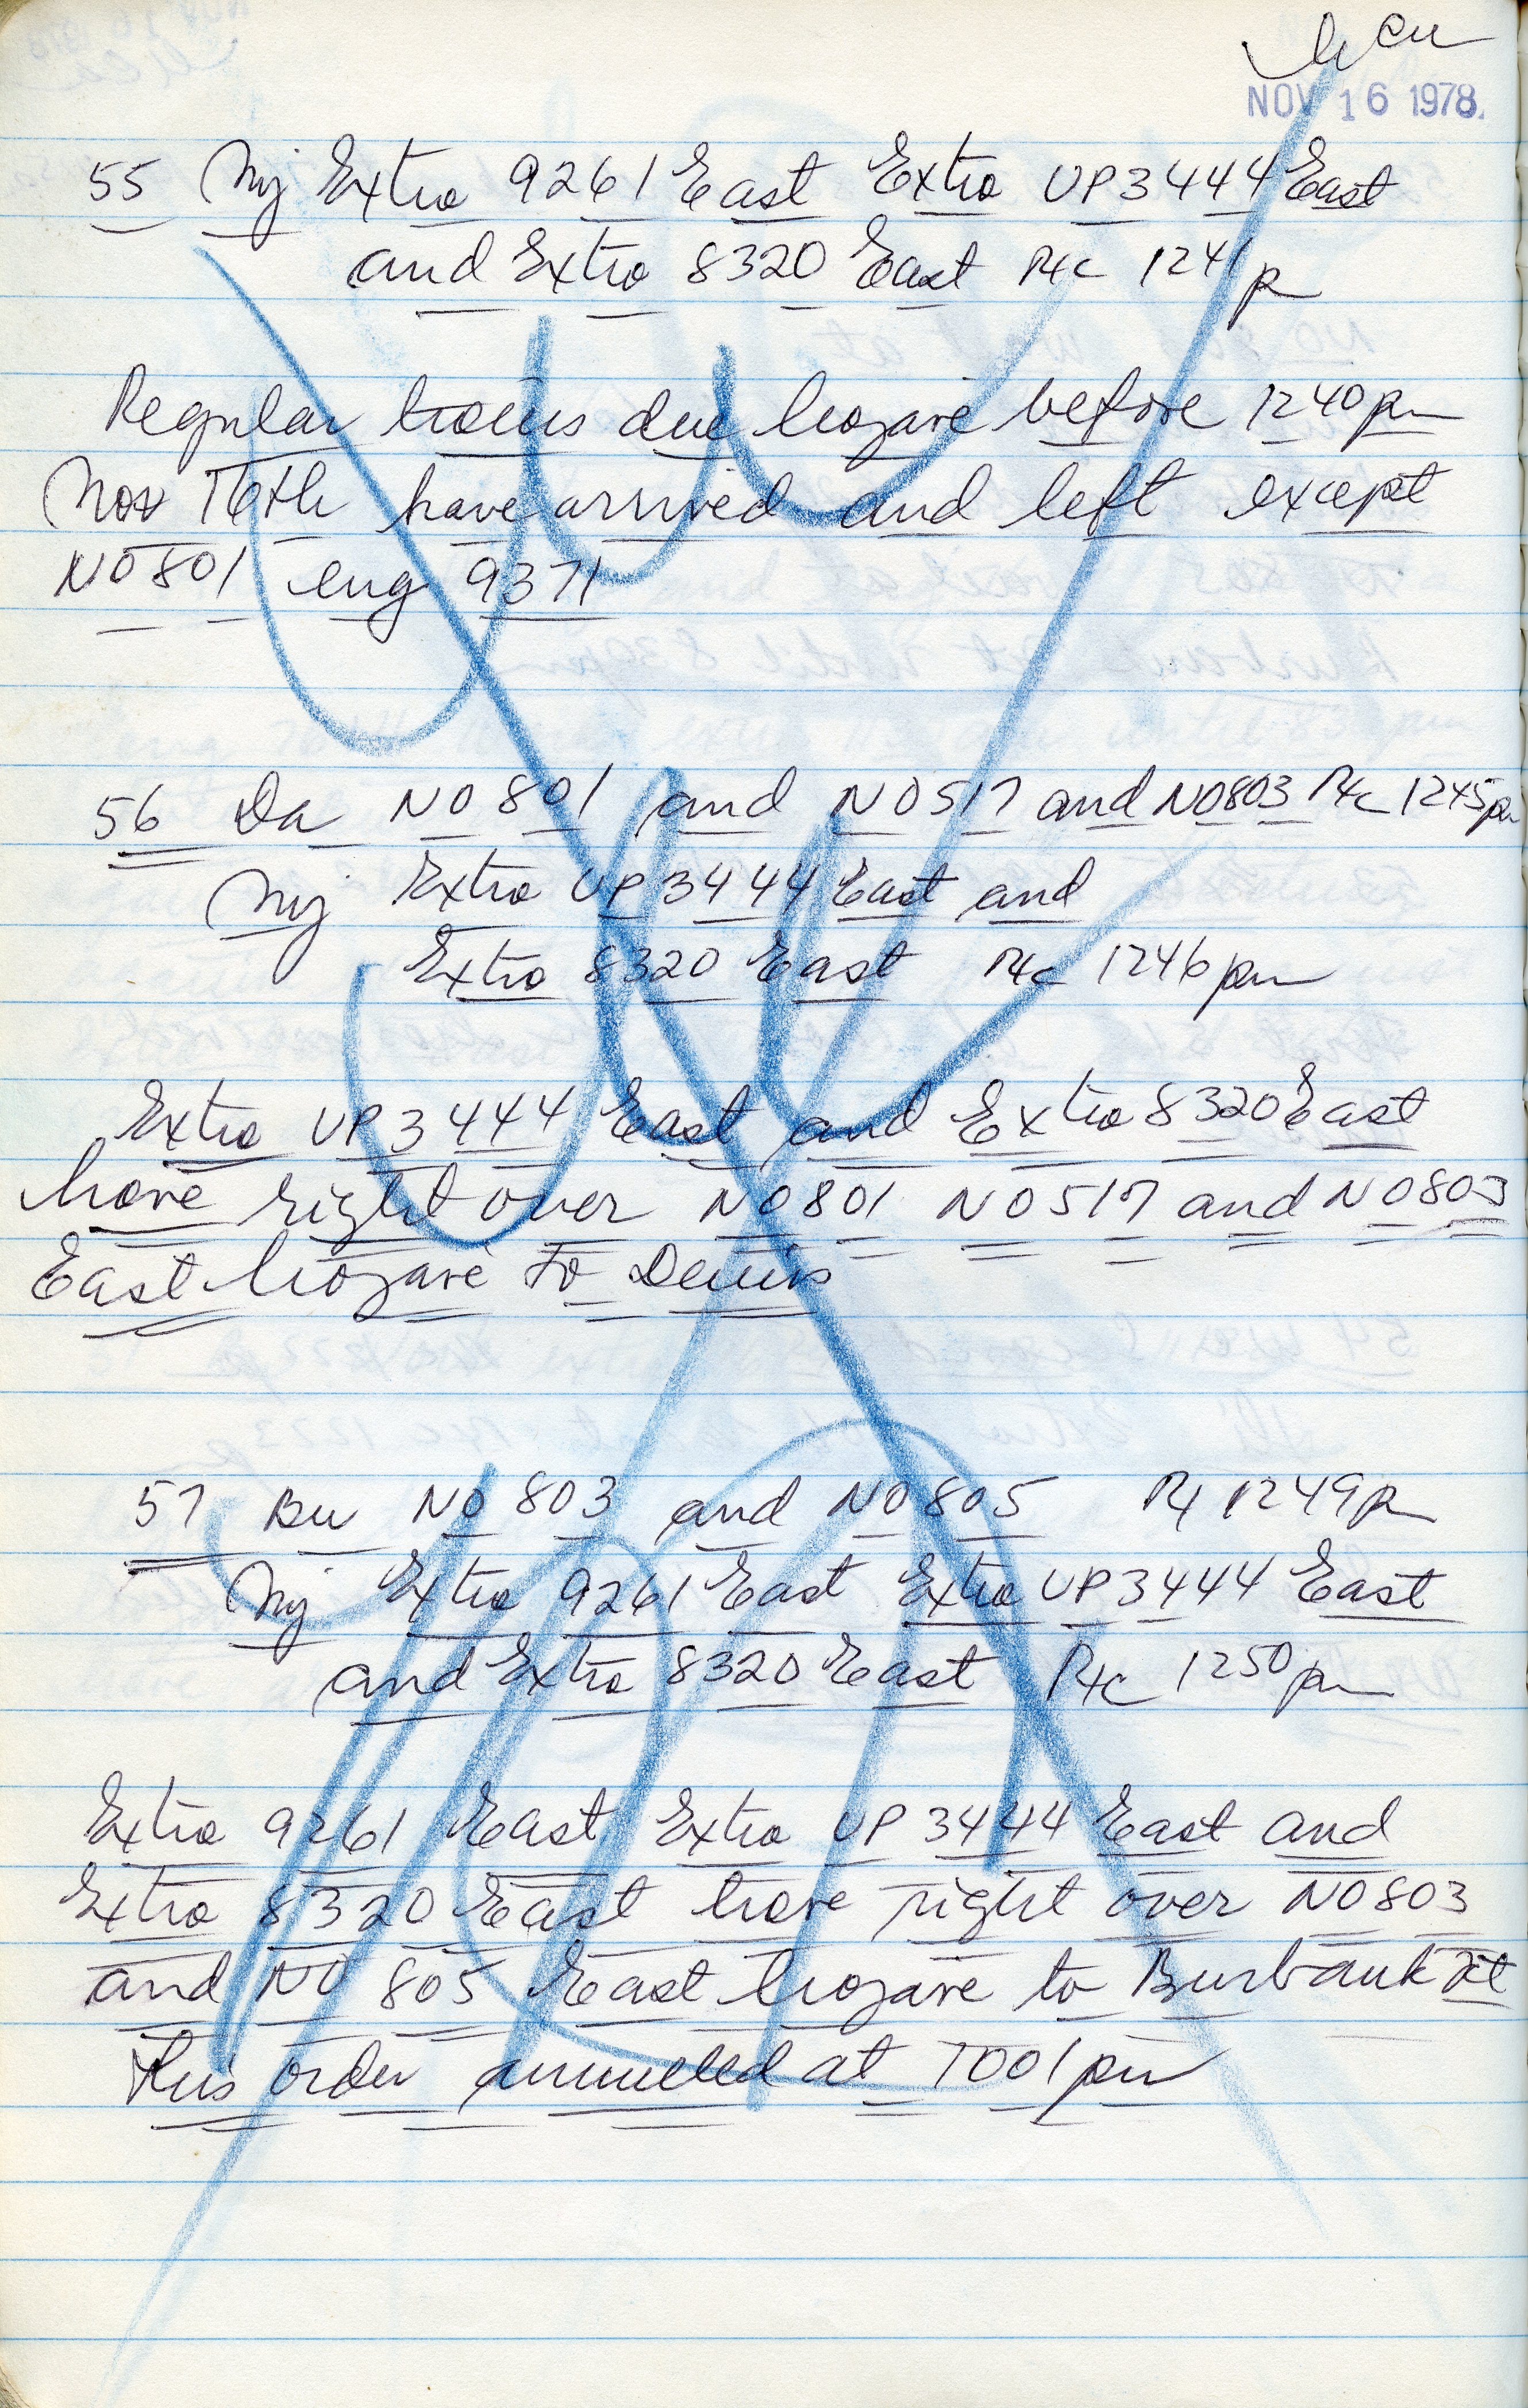 NOV 16 1978.
55 Mj Extra 9261 East Extra UP 3444 East
and Extra 8320 East 1241 p
Regular trains due Mojave before 1240 pm
Nov 16th have arrived and left except
No 801 eng 9371
56 Da No 801 and No 517 and No 803 1245 pm
Mj Extra UP 3444 East and
Extra 8320 East 1246 pm
Extra UP 3444 East and Extra 8320 East
have right over No 801 No 517 and No 803
East Mojave to Denis
57 Bu No 803 and No 805 1249 p
Mj Extra 9261 East Extra UP 3444 East
and Extra 8320 East 1250 pm
Extra 9261 East Extra UP 3444 East and
Extra 8320 East have right over No 803
and No 805 East Mojave to Burbank Jct
this order annulled at 1001 pm